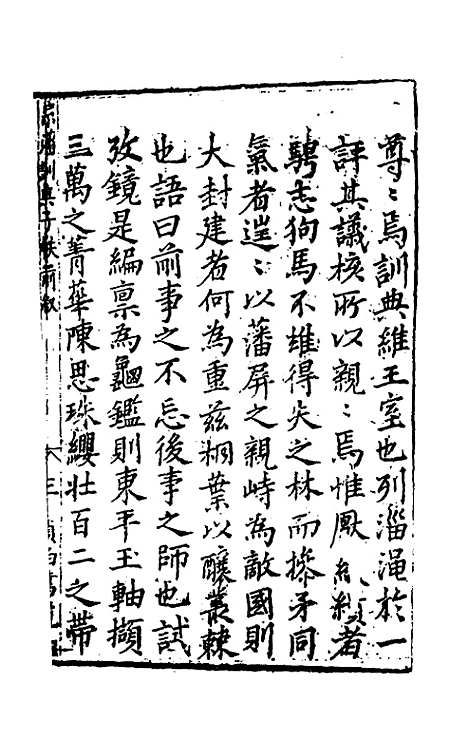 尊〻焉訓典維王室也列淄渑於一
評其議核所以親〻焉惟厥
者
騁志狥馬不維得失之林而摻矛同
氣者遑〻以藩屏之親峙為敵國則
大封建者何為重茲桐葉以釀叢棘
也語曰前事之不忘後事之師也試
攷鏡是編禀為龜鑑則東平玉軸擷
三萬之菁華陳思珠纓壮百二之帶
三